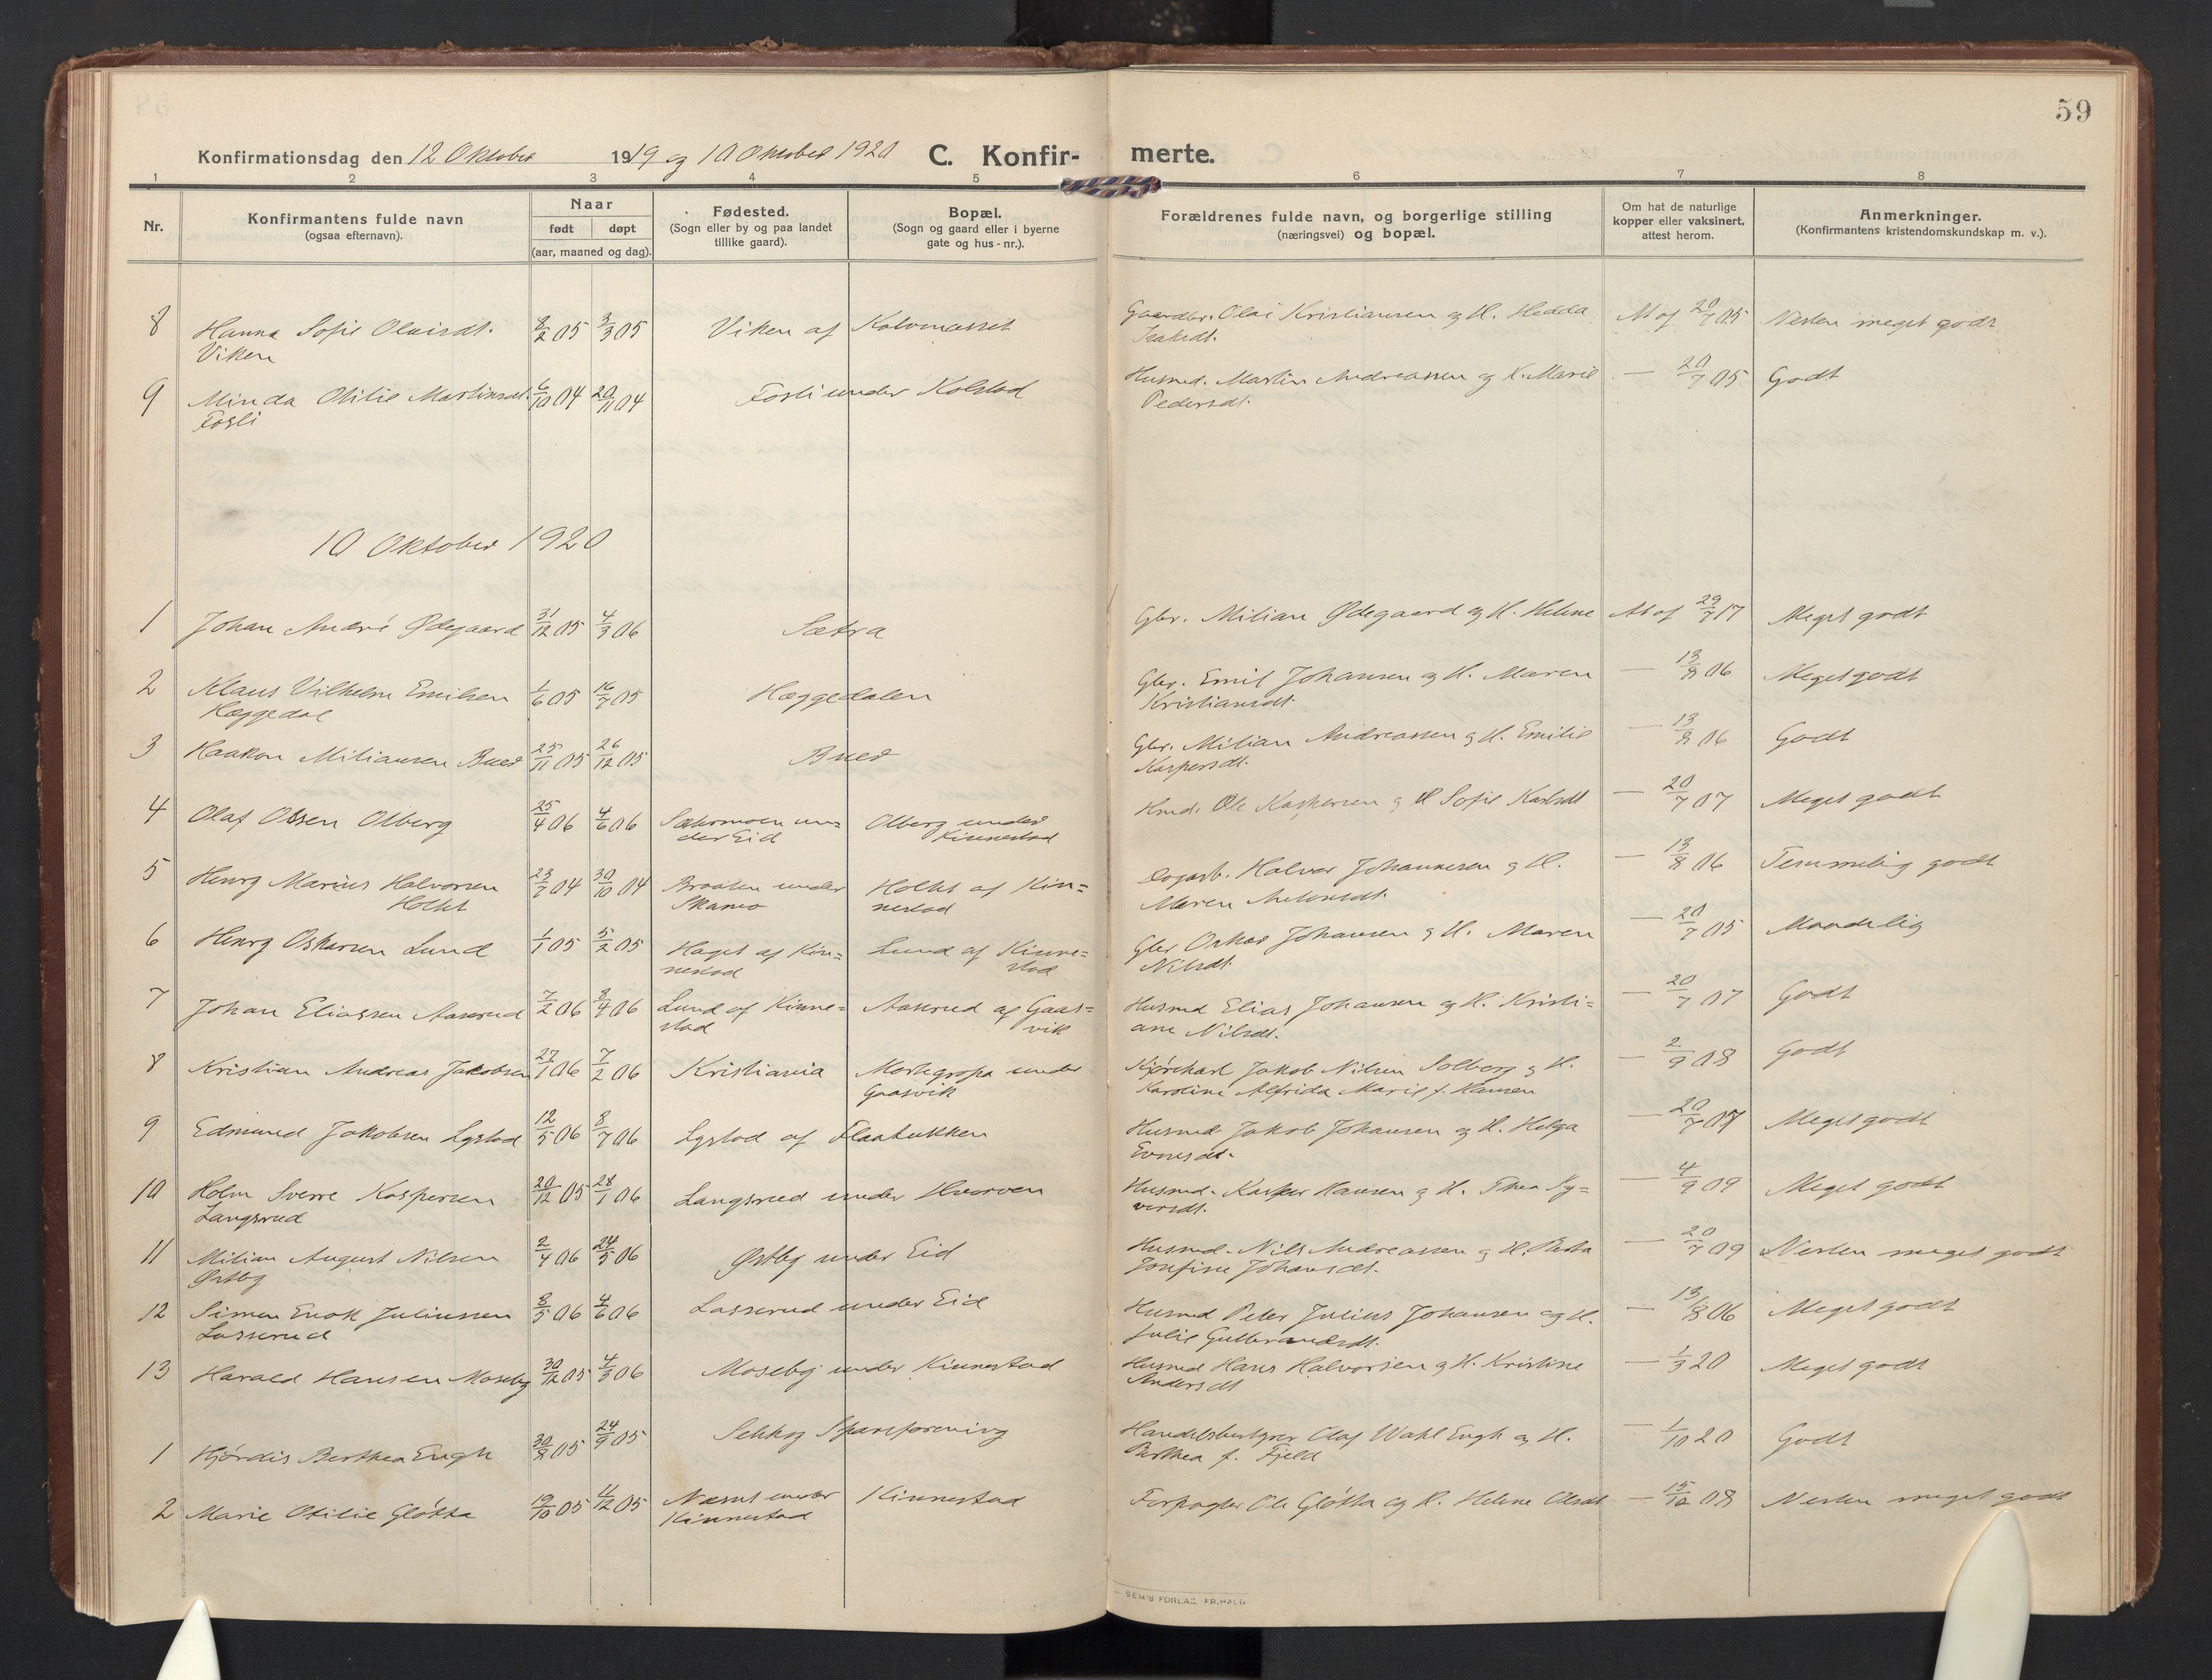 59
Konfirmationsdag den 12 Oktober 1919 og 10 Oktober 1920 C. Konfir- merte.
1 2 3 4 5 6 7 8
Nr.
Konfirmantens fulde navn
(ogsaa efternavn).
Naar
født døpt
(aar, maaned og dag).
Fødested.
(Sogn eller by og paa landet
tillike gaard).
Bopæl.
(Sogn og gaard eller i byerne
gate og hus-nr.).
Forældrenes fulde navn, og borgerlige stilling
(næringsvei) og bopæl.
Om hat de naturlige
kopper eller vaksinert,
attest herom.
Anmerkninger.
(Konfirmantens kristendomskundskap m. v.).
8 Hanna Sofie Olaisdt. 8/2 05 3/3 05 Viken af Gaardbr. Olai Kristiansen og H. Hedda At af 20/7 05 Nesten meget godt
Viken Isaksdt.
9 Minda Otilie Martinsdt. 6/10 04 20/11 04 Fosli under Kolstad Husmd. Martin Andreassen og H. Marie — 20/7 05 Godt
Fosli Pedersdt.
10 Oktober 1920
1 Johan André Ødegaard 31/12 05 4/3 06 Sætra Gbr. Milian Ødegaard og H. Helene At af 29/7 17 Meget godt
2 Klaus Vilhelm Emilsen 1/6 05 16/7 05 Hæggedalen Gbr. Emil Johansen og H. Maren — 13/8 06 Meget godt
Hæggedal Kristiansdt.
3 Haakon Miliansen Bued 25/11 05 26/12 05 Bued Gbr. Milian Andreassen og H. Emilie — 13/8 06 Godt
Kaspersdt.
4 Olaf Olsen Olberg 25/4 06 4/6 06 Sætermoen un= Olberg under Hmd. Ole Kaspersen og H. Sofie Karlsdt — 20/7 07 Meget godt
der Eid Kinnestad
5 Henry Marius Halvorsen 23/7 04 30/10 04 Braaten under Holtet af Kin= Dagarb. Halvor Johannesen og H. — 13/8 06 Temmelig godt
Holtet nestad Maren Antonsdt.
6 Henry Oskarsen Lund 1/1 05 5/2 05 Haget af Kin= Lund af Kinne= Gbr Oskar Johansen og H. Maren — 20/7 05 Maadelig
nestad stad Nilsdt.
7 Johan Eliassen Aaserud 7/2 06 8/4 06 Lund af Kinne= Aaserud af Gaas= Husmd Elias Johansen og H. Kristi= — 20/7 07 Godt
stad vik ane Nilsdt.
8 Kristian Andreas Jakobsen 27/1 06 7/2 06 Kristiania under Kjørekarl Jakob Nilsen Solberg og H. — 2/9 08 Godt
Gaasvik Karoline Alfrida Marie f. Hansen
9 Edmund Jakobsen Lystad 12/5 06 8/7 06 Lystad af Flaatukken Husmd. Jakob Johansen og H. Helga — 20/7 07 Meget godt
10 Holm Sverre Kaspersen 20/12 05 28/1 06 Langsrud under Hvarven Husmd. Kasper Hansen og H. Thea Sy= — 4/9 09 Meget godt
Langsrud versdt.
11 Milian August Nilsen 2/4 06 24/5 06 Østby under Eid Husmd. Nils Andreassen og H. — 20/7 09 Nesten meget godt
Østby Josefine Johansdt.
12 Simen Enok Juliussen 8/5 06 4/6 06 Lasserud under Eid Husmd Peter Julius Johansen og H. — 13/8 06 Meget godt
Lasserud Julie Gulbrandsdt.
13 Harald Hansen Moseby 30/12 05 4/3 06 Moseby under Kinnestad Husmd Hans Halvorsen og H. Kristine — 1/3 20 Meget godt
Andersdt
1 Hjørdis Berthea Engh 30/8 05 24/9 05 Spareforening Handelsbestyrer Olaf Wahl Engh og H. — 1/10 20 Godt
Berthea f. Fjeld
2 Marie Otilie Gløtta 19/10 05 4/12 05 Næset under Kinnestad Forpagter Ole Gløtta og H. Helene Olsdt — 15/10 08 Nesten meget godt
Kinnestad
SEM'S FORLAG, FR.HALD